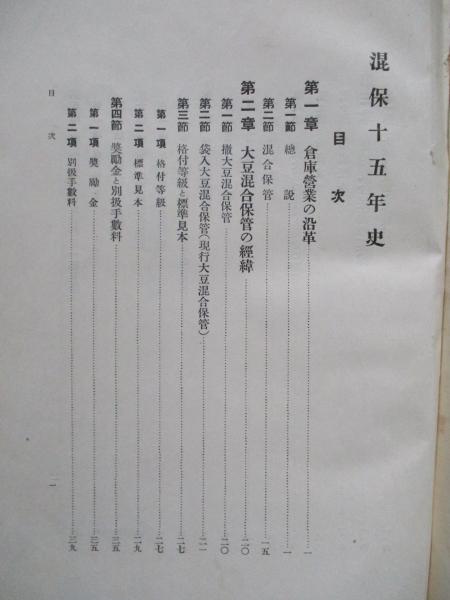 混保十五年史
目次
第一章 倉庫營業の沿革……一
第一節 總說……一
第二節 混合保管……一五
第二章 大豆混合保管の經緯……二〇
第一節 撒大豆混合保管……二〇
第二節 袋入大豆混合保管(現行大豆混合保管)……二一
第三節 格付等級と標準見本……二七
第一項 格付等級……二七
第二項 標準見本……二九
第四節 奬勵金と別扱手數料……三五
第一項 奬勵金……三五
第二項 別扱手數料……三九
目次
一